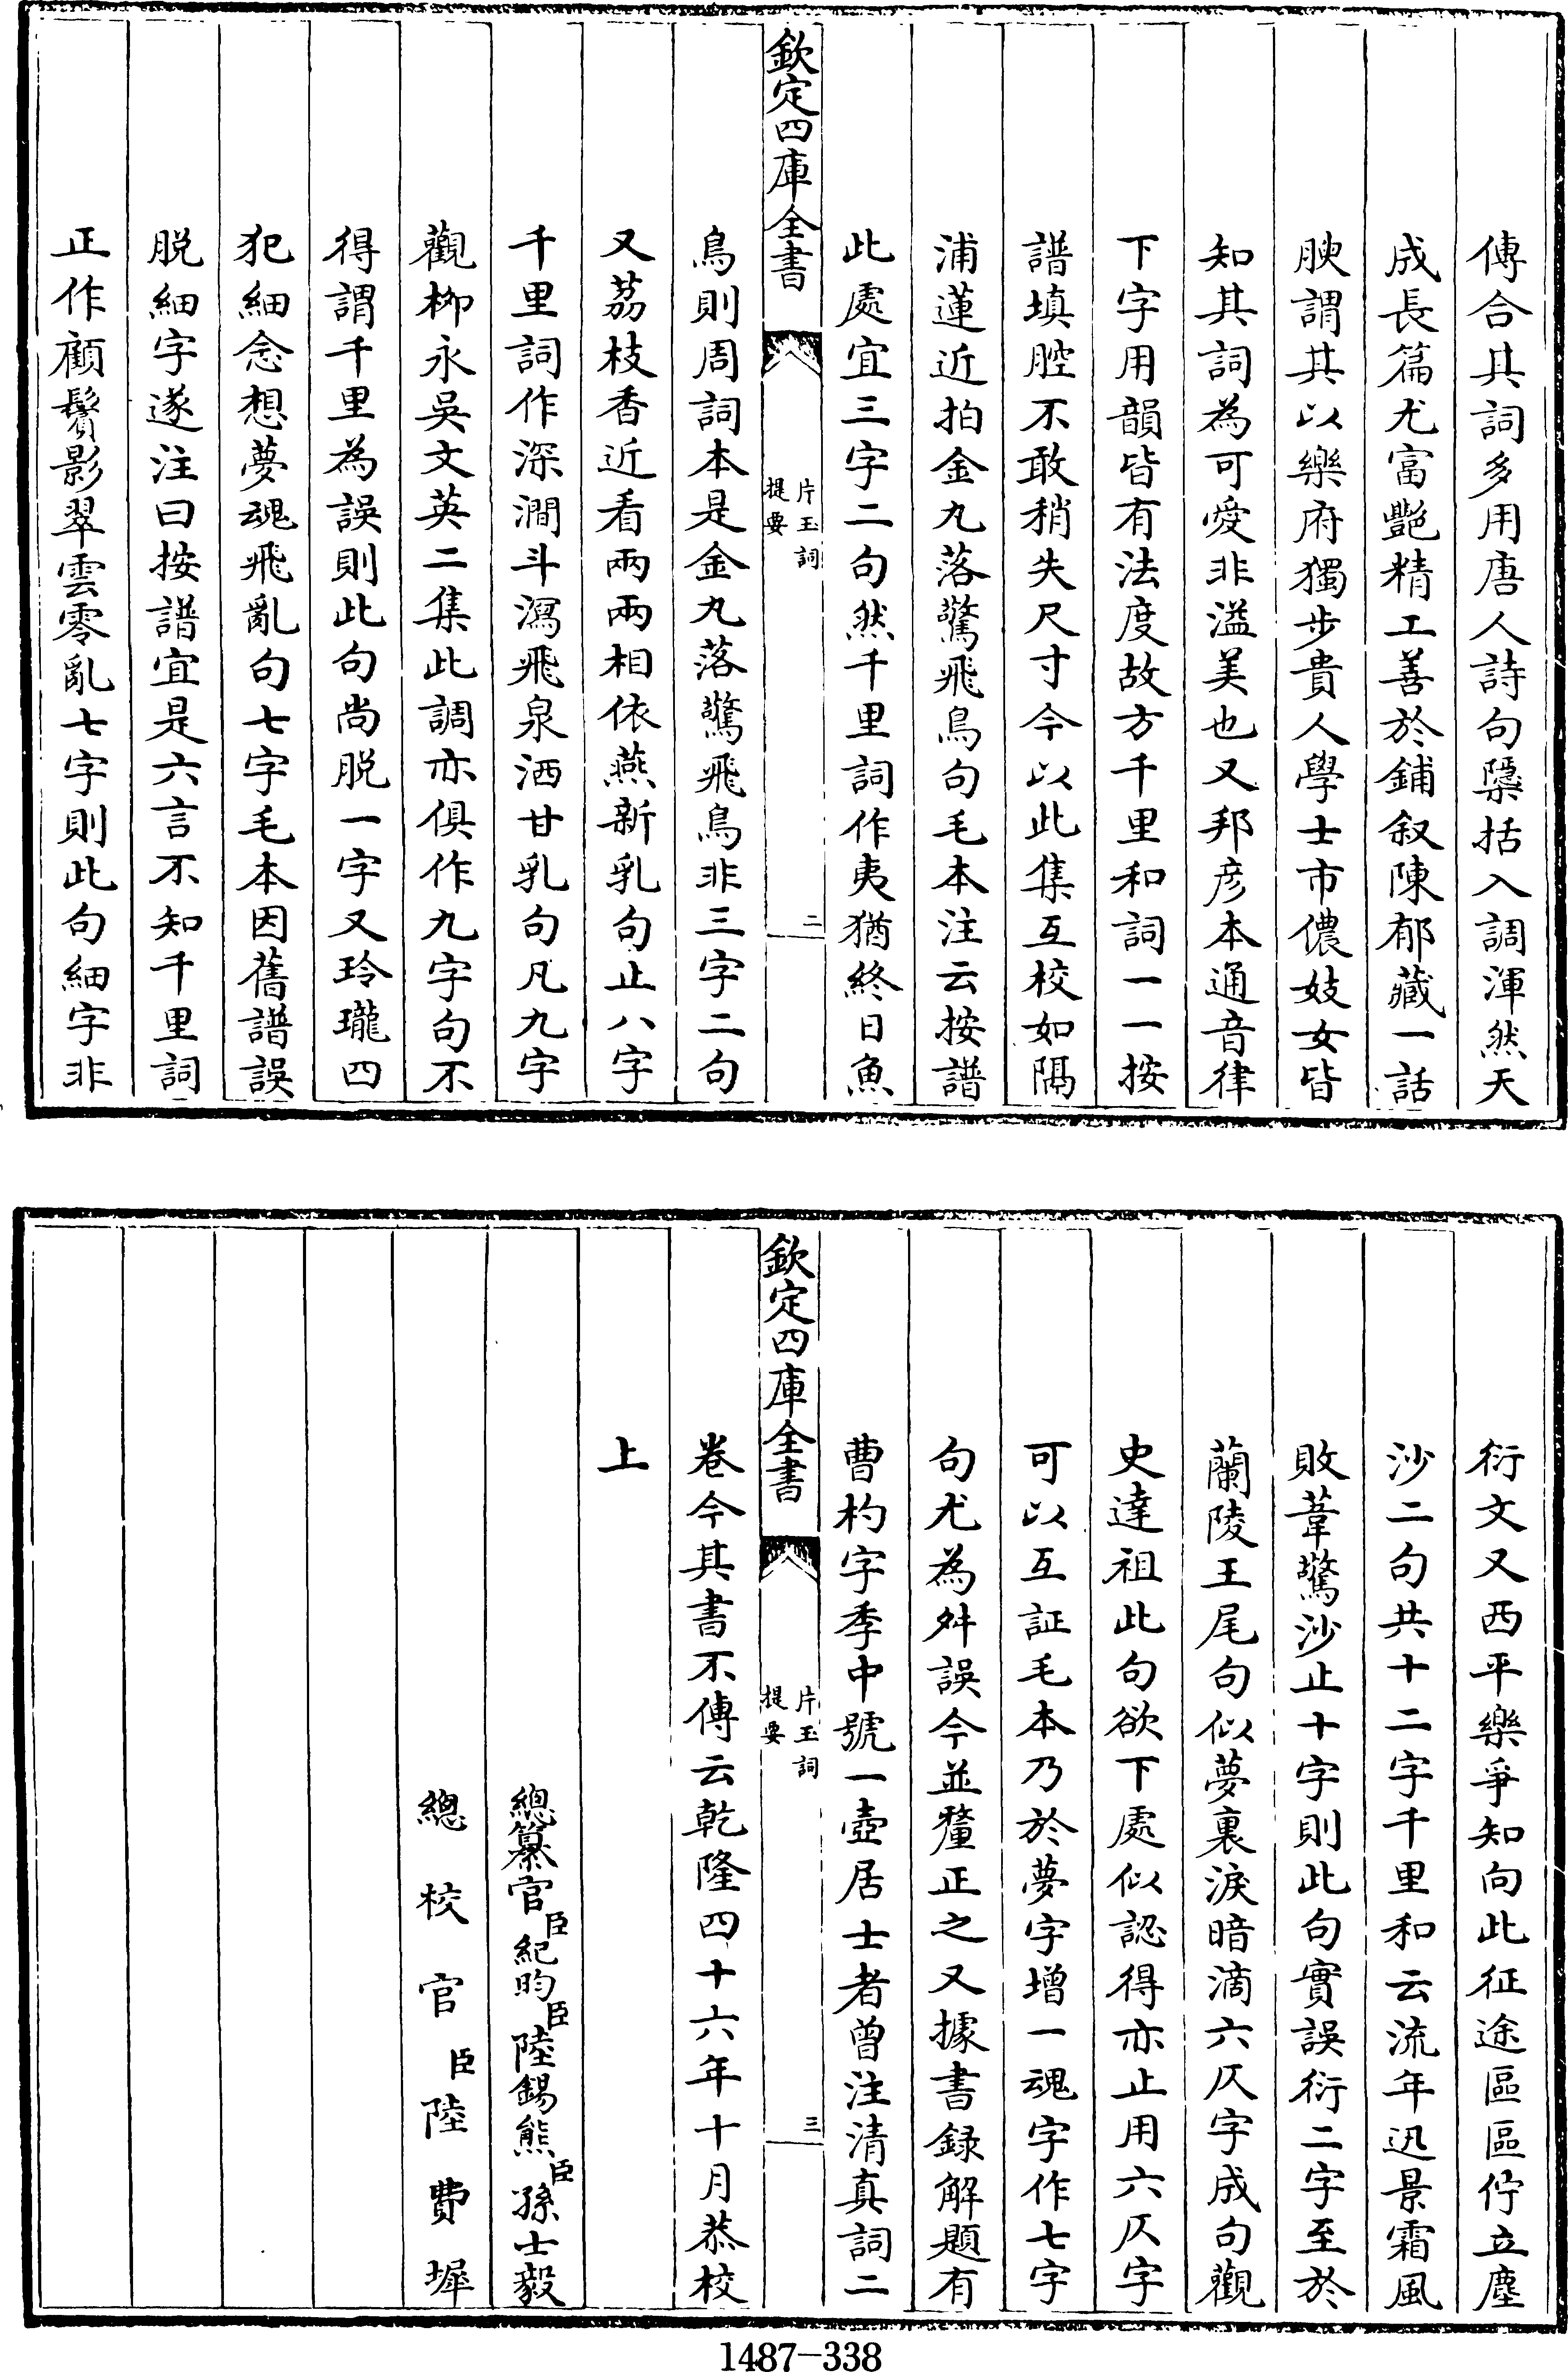 傅合其詞多用唐人詩句隱括入調渾然天
成長篇尤富艷精工善於鋪叙陳郁藏一話
腴謂其以樂府獨步貴人學士市儂妓女皆
知其詞為可愛非溢美也又邦彦本通音律
下字用韻皆有法度故方千里和詞一一按
譜填腔不敢稍失尺寸今以此集互校如隔
浦蓮近拍金丸落驚飛鳥句毛本注云按譜
此處宜三字二句然千里詞作夷猶終日魚
欽定四庫全書
片玉詞
提要
二
鳥則周詞本是金丸落驚飛鳥非三字二句
又荔枝香近看兩兩相依燕新乳句止八字
千里詞作深澗斗瀉飛泉洒甘乳句凡九字
觀柳永吳文英二集此調亦俱作九字句不
得謂千里為誤則此句尚脱一字又玲瓏四
犯細念想夢魂飛亂句七字毛本因舊譜誤
脱細字遂注曰按譜宜是六言不知千里詞
正作顧鬢影翠雲零亂七字則此句細字非
衍文又西平樂爭知向此征途區區佇立塵
沙二句共十二字千里和云流年迅景霜風
敗葦驚沙止十字則此句實誤衍二字至於
蘭陵王尾句似夢裏淚暗滴六仄字成句觀
史達祖此句欲下處似認得亦止用六仄字
可以互証毛本乃於夢字增一魂字作七字
句尤為舛誤今並釐正之又據書録解題有
曹杓字季中號一壺居士者曾注清真詞二
欽定四庫全書
片玉詞
提要
三
卷今其書不傳云乾隆四十六年十月恭校
上
總纂官臣紀昀臣陸錫熊臣孫士毅
總校官臣陸費墀
1487-338